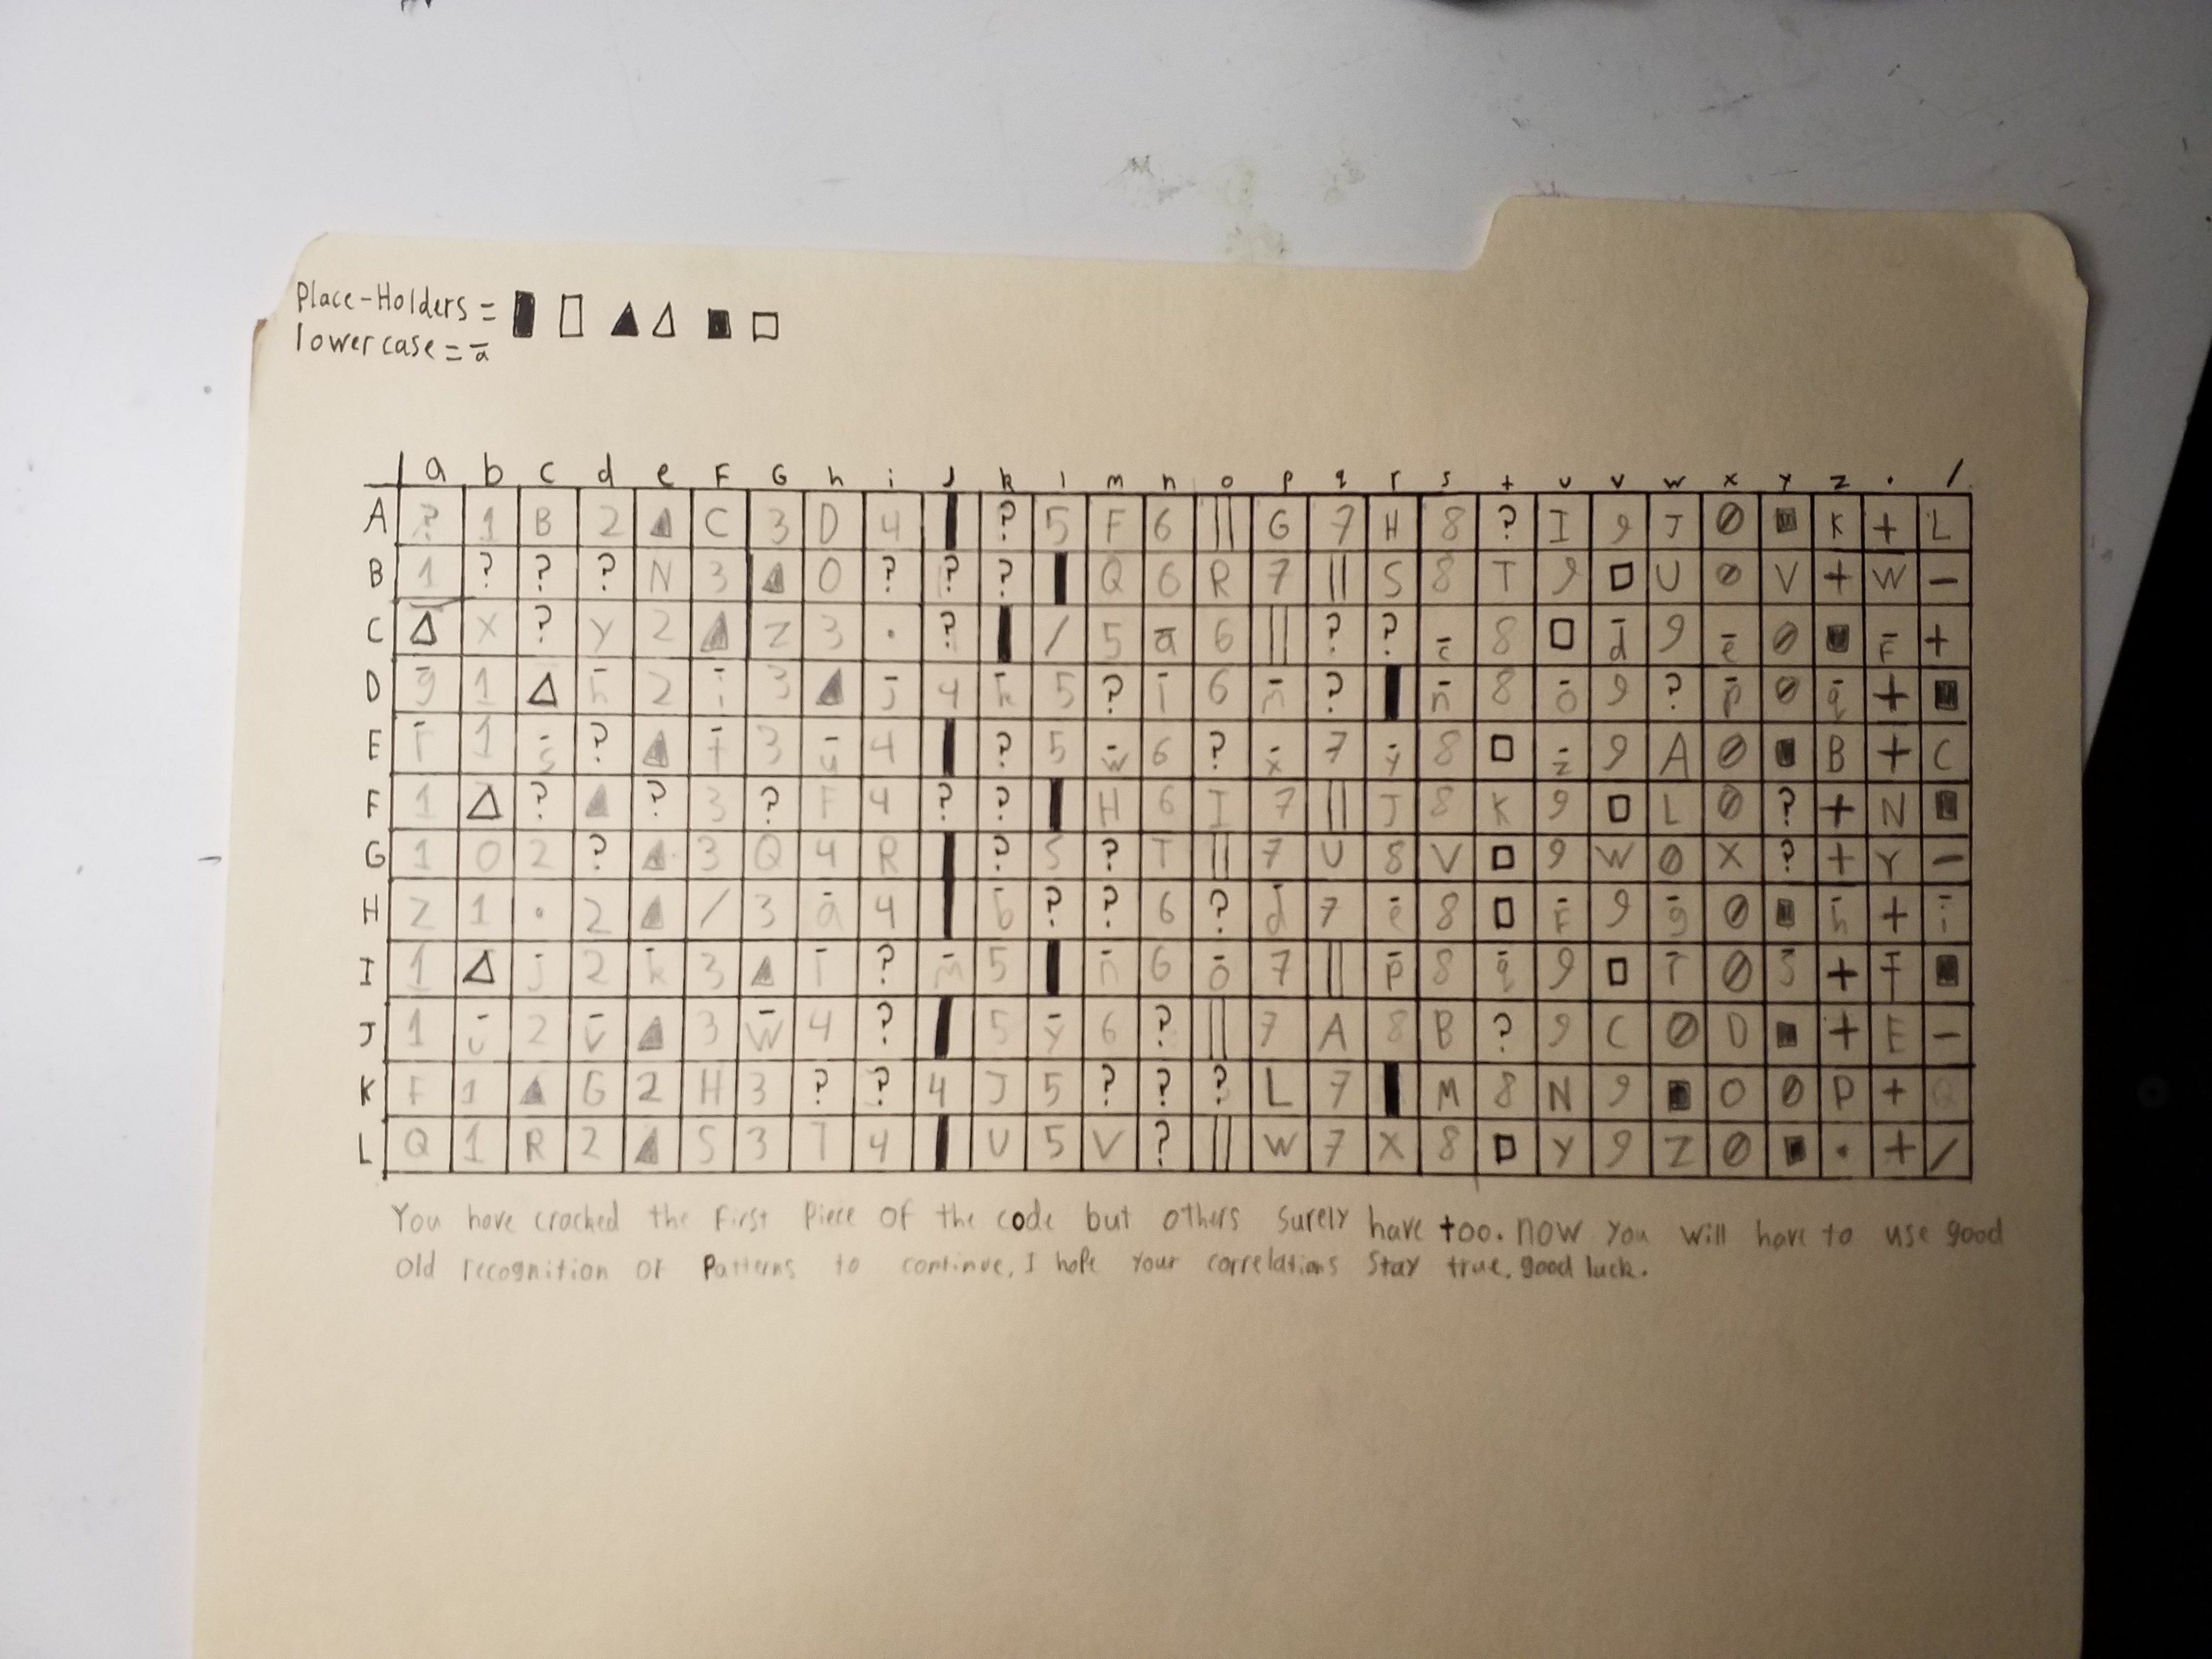 Place-Holders =
lowercase = a
a b c d e F G h i J k l m n o p q r s t u v w x y z . /
A ? 1 B 2 C 3 D 4 ? 5 F 6 || G 7 H 8 ? I 9 J Ø K + L
B 1 ? ? ? N 3 O ? ? ? Q 6 R 7 || S 8 T 9 U Ø V + W -
C X ? Y 2 Z 3 . ? / 5 a 6 || ? ? c 8 d 9 e Ø F +
D g 1 h 2 i 3 j 4 k 5 ? l 6 m ? n 8 o 9 ? p Ø q +
E r 1 s ? t 3 u 4 ? 5 w 6 ? x 7 y 8 z 9 A Ø B + C
F 1 ? ? 3 ? F 4 ? ? H 6 I 7 || J 8 K 9 L Ø ? + N
G 1 O 2 ? 3 Q 4 R ? 5 ? T || 7 U 8 V 9 W Ø X ? + Y -
H Z 1 . 2 / 3 a 4 b ? ? 6 ? d 7 e 8 F 9 g Ø h + i
I 1 j 2 k 3 l ? m 5 n 6 o 7 || p 8 q 9 r Ø s + t
J 1 u 2 v 3 w 4 ? 5 y 6 ? || 7 A 8 B ? 9 C Ø D + E -
K F 1 G 2 H 3 ? ? 4 J 5 ? ? ? L 7 M 8 N 9 O Ø P + Q
L Q 1 R 2 S 3 T 4 U 5 V ? || W 7 X 8 Y 9 Z Ø . + /
You have cracked the First Piece of the code but others surely have too. now you will have to use good
old recognition of Patterns to continue, I hope your correlations stay true. good luck.